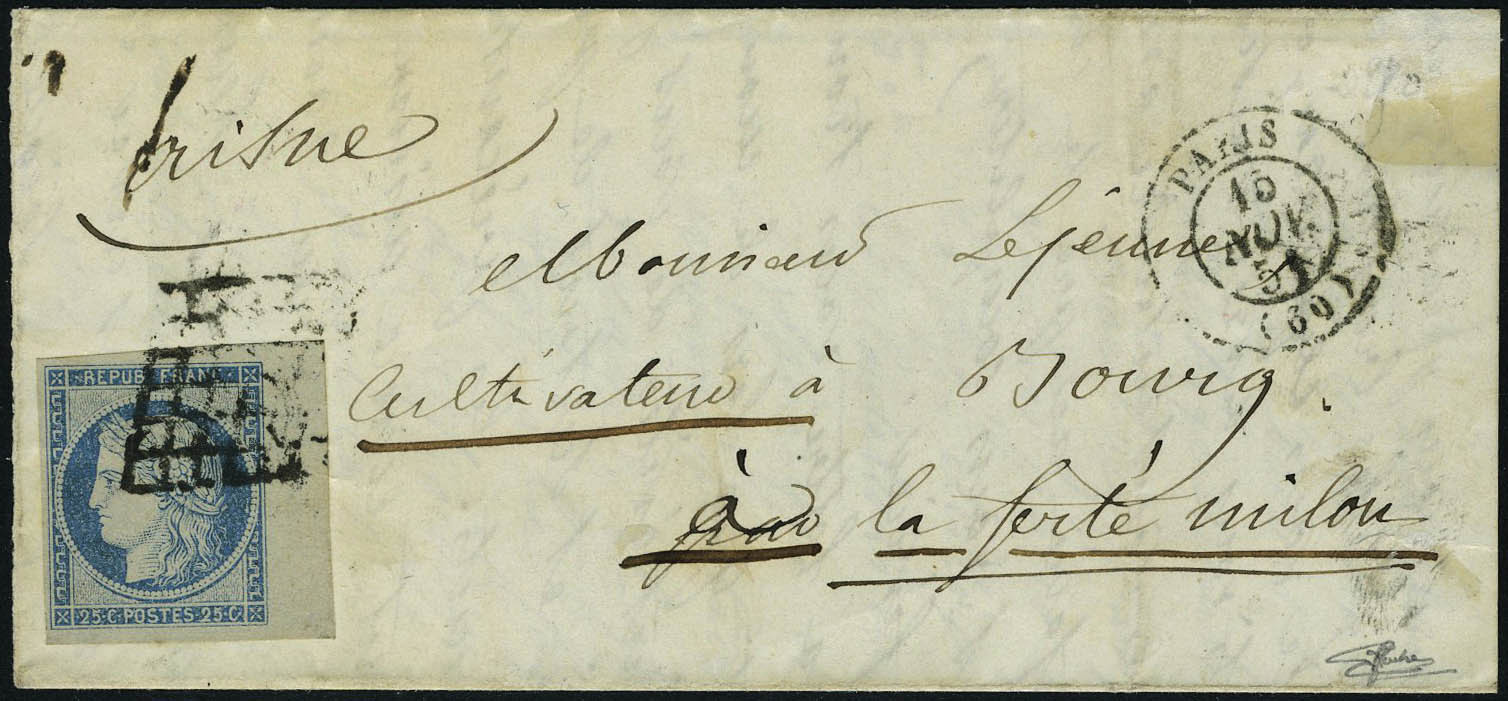 PARIS
15
NOV.
51
(60)
Monsieur Lejeune
Cultivateur à Bourg
par la ferté milon
REPUB. FRANC.
25·C·POSTES·25·C